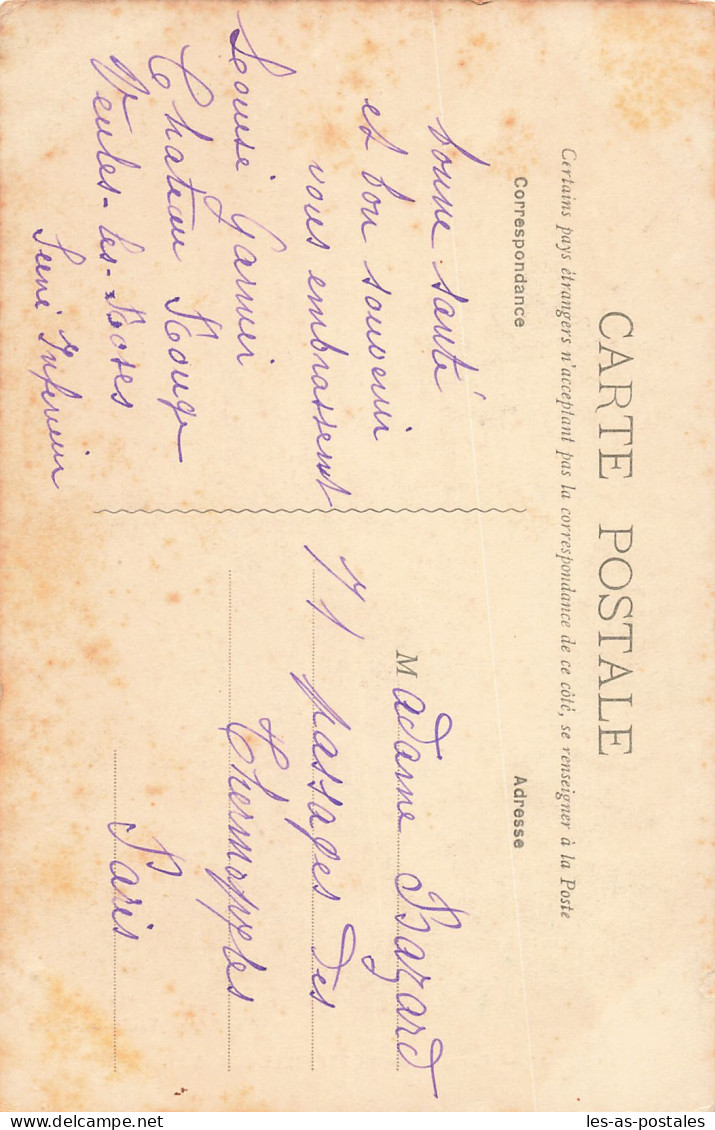 CARTE POSTALE
Certains pays étrangers n'acceptant pas la correspondance de ce côté, se renseigner à la Poste
Correspondance
bonne santé
et bon souvenir
vous embrassent
Louise Garnier
Chateau Rouge
Veules-les-Roses
Seine Inferieur
Adresse
Madame Bazard
71 passages des
Thermopyles
Paris
les-as-postales